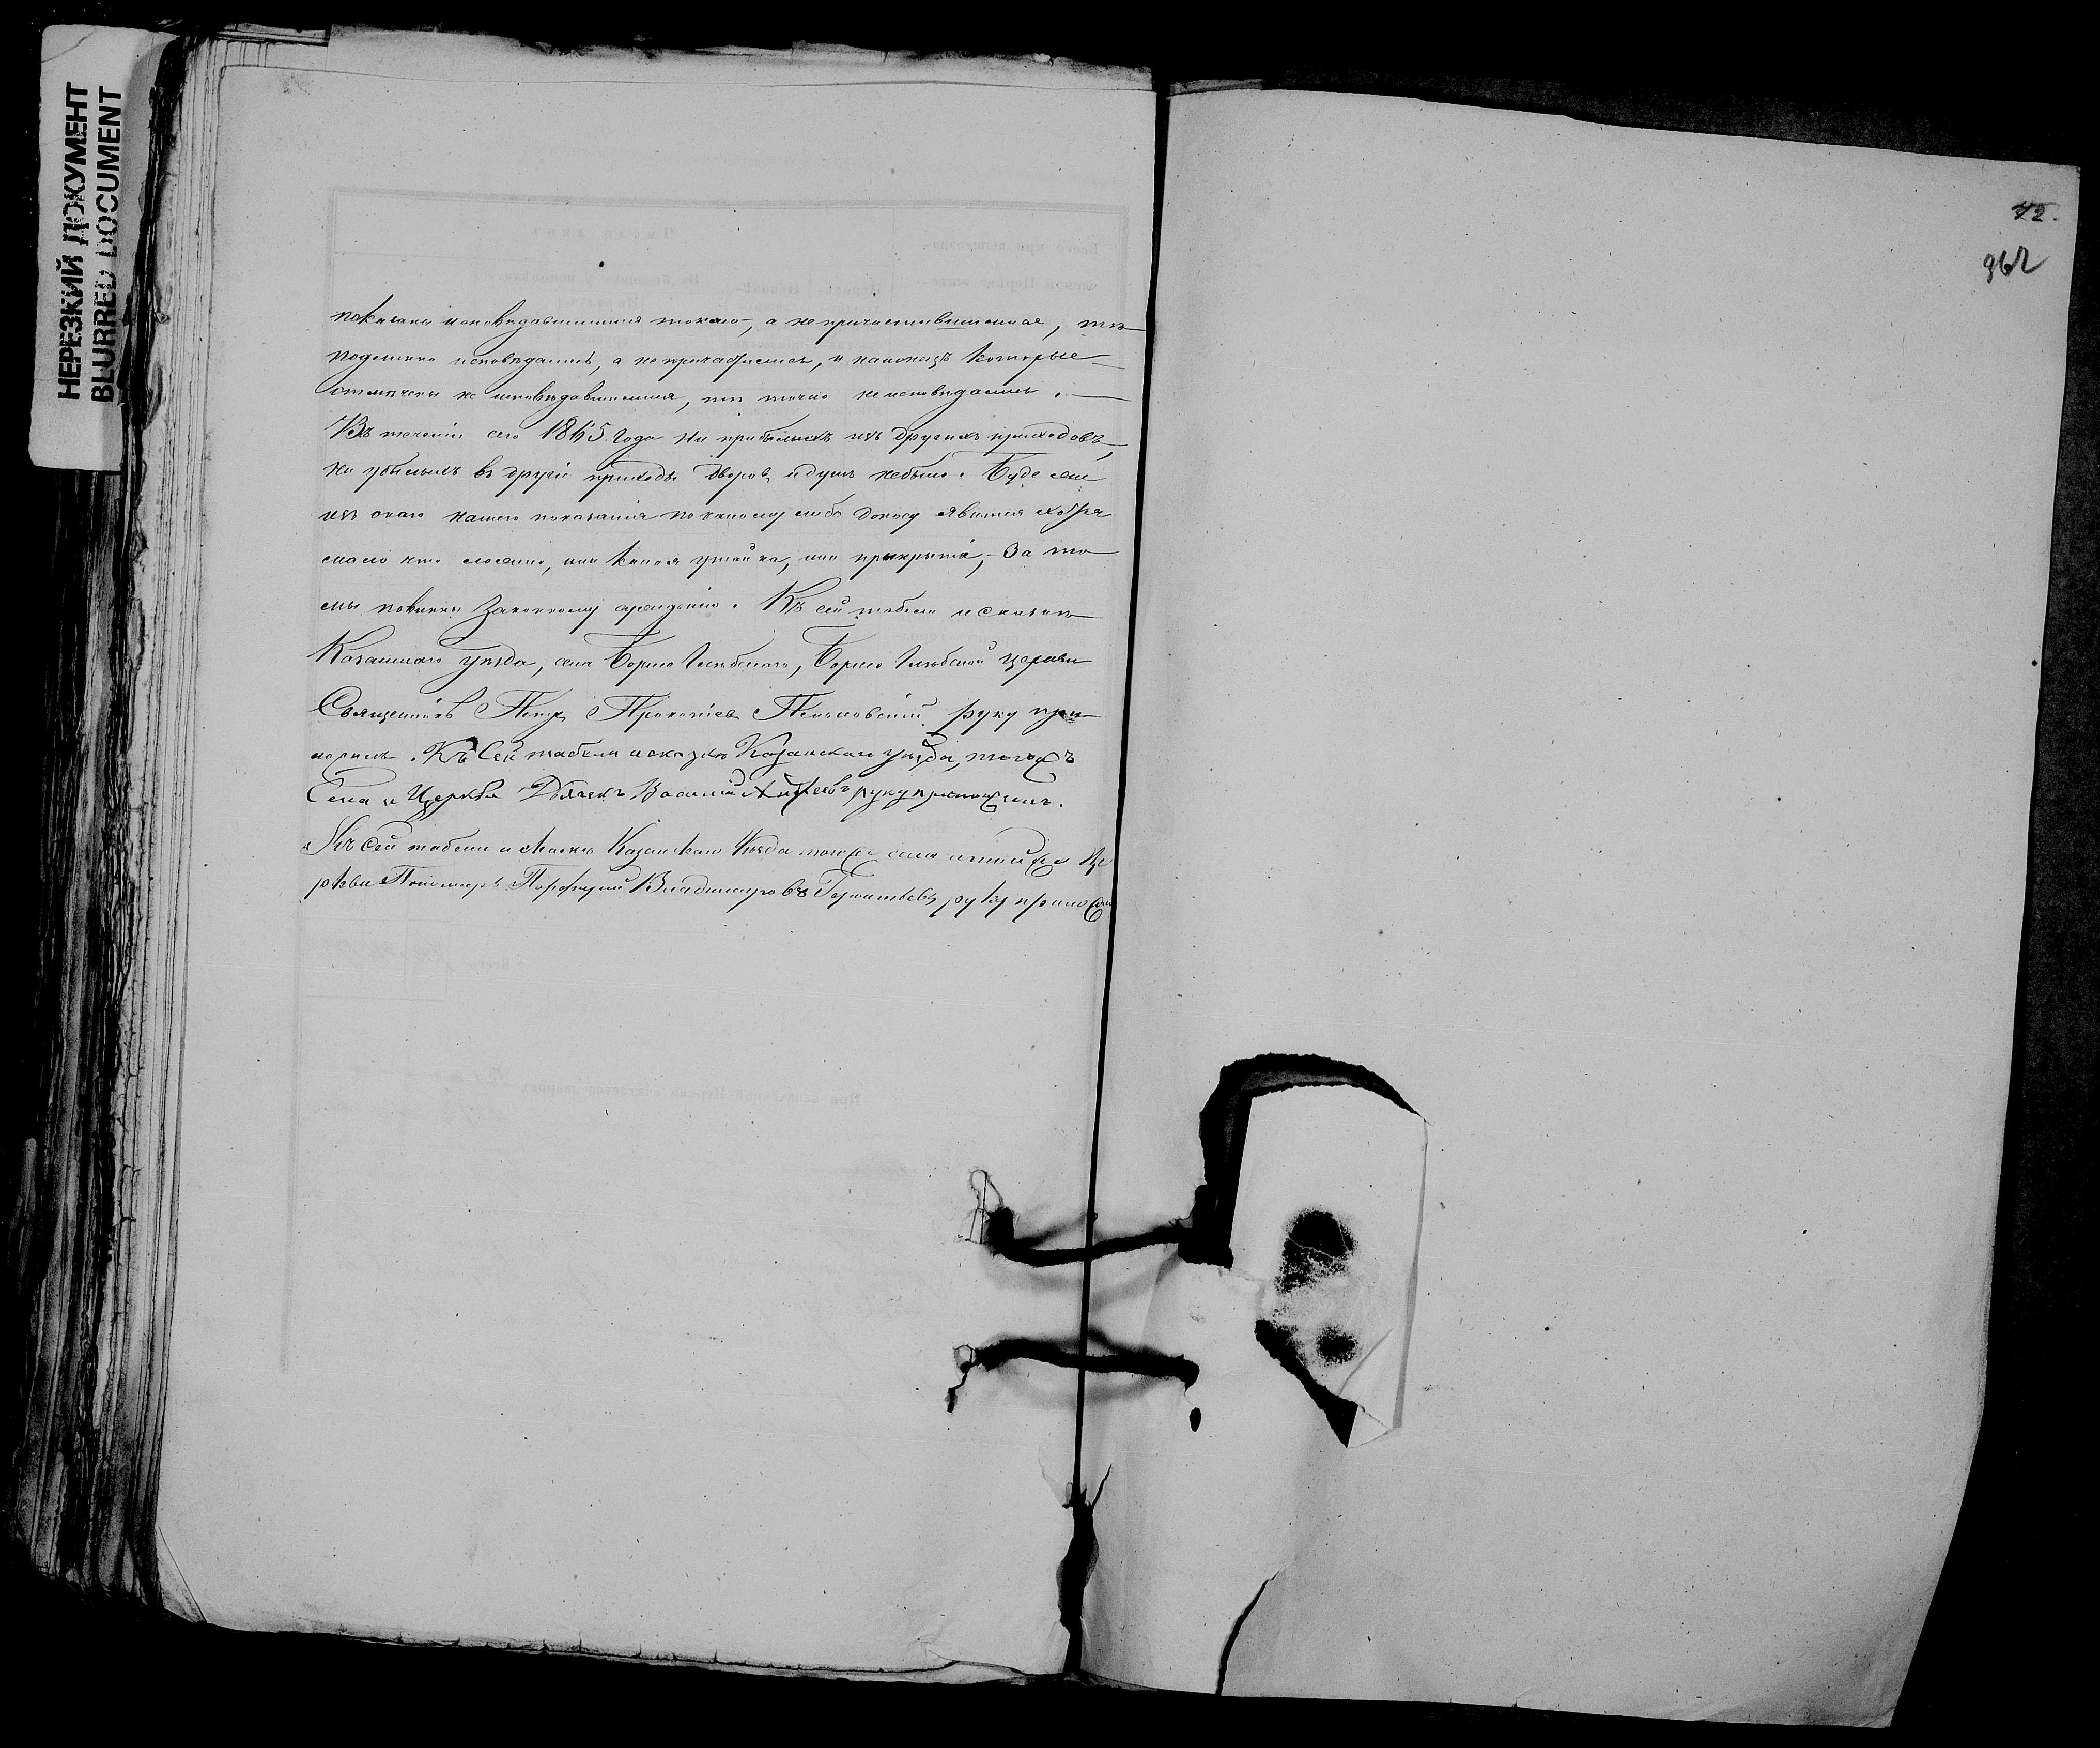 НЕРЕЗКИЙ ДОКУМЕНТ
BLURRED DOCUMENT
42.
962
показаны исповѣдавшимися токмо, а не причастившимися, тѣ
подлинно исповѣдались, а не причастились, и наконецъ которые
отмѣчены не исповѣдавшимися, тѣ точно не исповѣдались.
Въ теченіи сего 1865 года ни прибылыхъ изъ другихъ приходовъ,
ни убылыхъ въ другіе приходы дворовъ и душъ не было. Буде же
изъ онаго нашего показанія по какому либо доносу явится хотя
мало что ложно, или какая утайка, или прикрытіе, За то
мы повинны Законному сужденію. Къ сей табели и сказкѣ
Казанскаго уѣзда, села Борисо Глѣбскаго, Борисо Глѣбской церкви
Священникъ Петръ Прокопіев руку при-
ложилъ. Къ Сей табели и сказкѣ Казанскаго уѣзда, тогожъ
Села и Церкви Дьячекъ Василій руку приложилъ.
Къ Сей табели и сказкѣ Казанскаго Уѣзда тогоже села и той же Це
ркви Пономарь Порфирій Владимировъ руку приложилъ